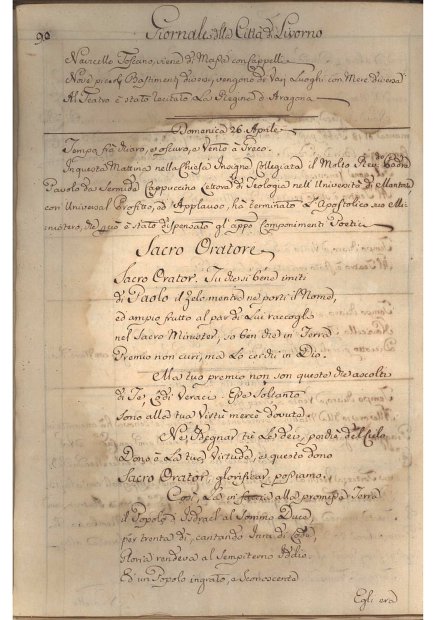 90 Giornale della Città di Livorno
Navicello Toscano, viene di Massa con Cappelli
Nove piccoli Bastimenti diversi, vengono da Varj Luoghi con Merc diverse
Al Teatro è stato recitato La Regina d'Aragona
Domenica 26 Aprile
Tempo fra chiaro, e oscuro, e Vento a Greco.
In questa Mattina nella Chiesa Insigne Collegiata il Molto Revdo Padre
Pavolo da Sermide Cappuccino Lettore di Teologia nell'Università di Mantova
con Universal Profitto, ed Applauso, ha terminato l'Apostolico suo Mi-
nistero, che però è stato dispensato gl'appo Componimenti Poetici
Sacro Oratore
Sacro Orator. Tu che si bene imiti
di Paolo il Zelo mentre ne porti il Nome,
ed ampio frutto al par di Lui raccogli
nel Sacro Minister, so ben che in Terra
Premio non curi, ma Lo cerchi in Dio.
Ma tuo premio non son queste che ascolti
di Te, Lodi Veraci. Esse Soltanto
sono alla tua Virtù mercè dovuta.
Nè sdegnar tù Le dei, poiche del Cielo
Dono è La tua Virtude, e questo dono
Sacro Orator, glorificar, possiamo.
Così, Là in alla promessa Terra
il Popolo d'Isdrael al Sommo Duce,
per trenta dì, cantando Inni di Lode,
Gloria rendeva al Sempiterno Iddio.
Ed un Popolo ingrato, e Sconoscente
Egli era